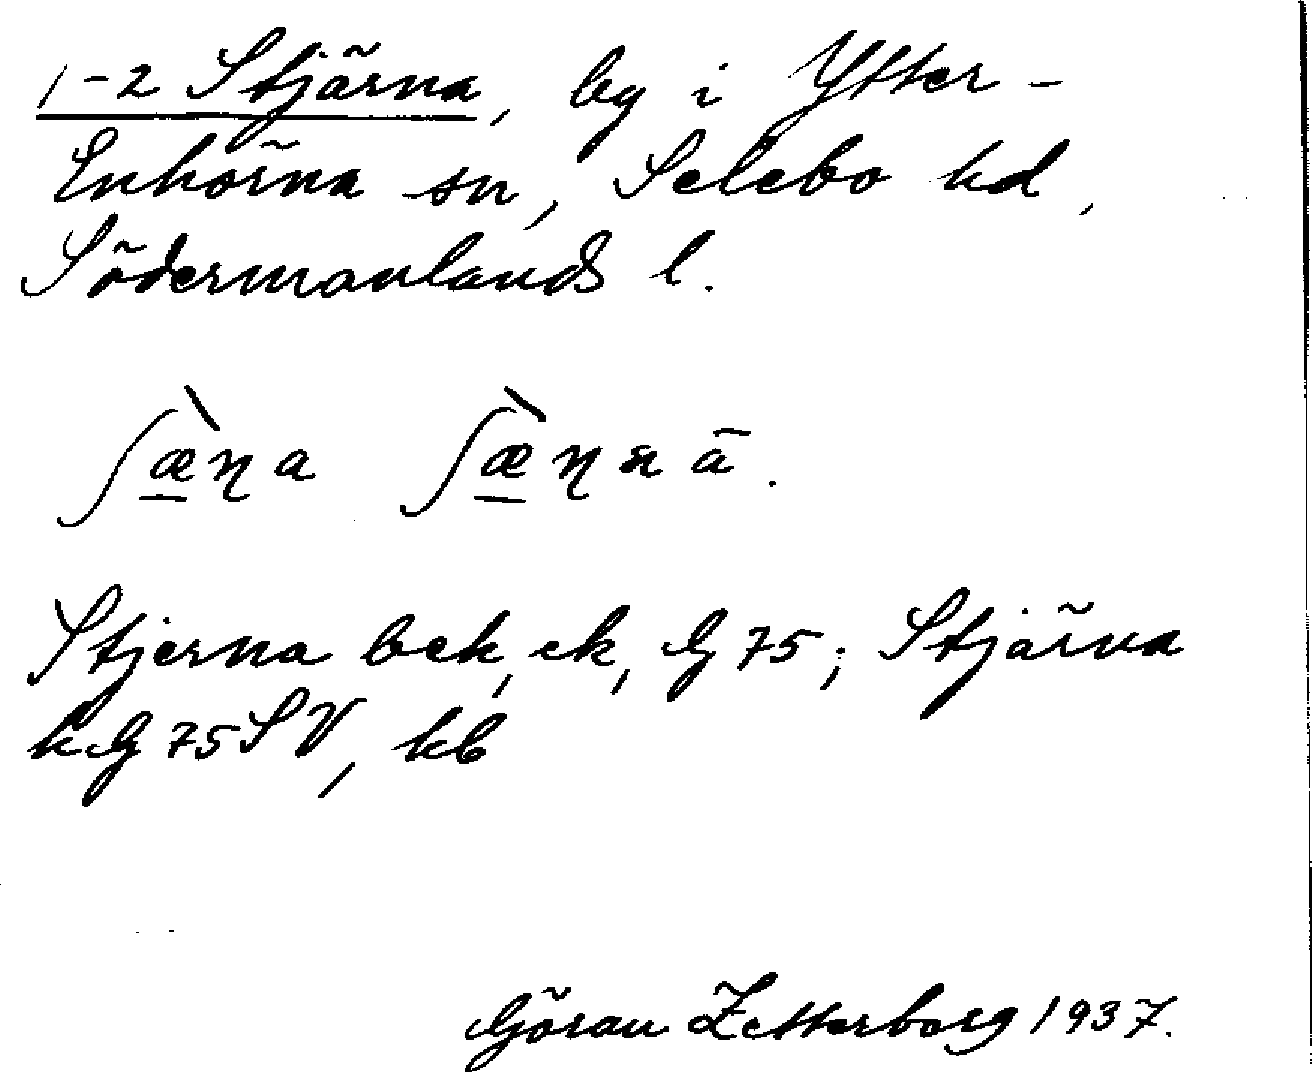 1-2 Stjärna, by i Ytter-
Enhörna sn, Selebo hd,
Södermanlands l.
ʃæ̀ɳa ʃæ̀ɳaā.
Stjerna bek, ek, G 75; Stjärna
kG 75 SV, kb
Göran Zetterborg 1937.